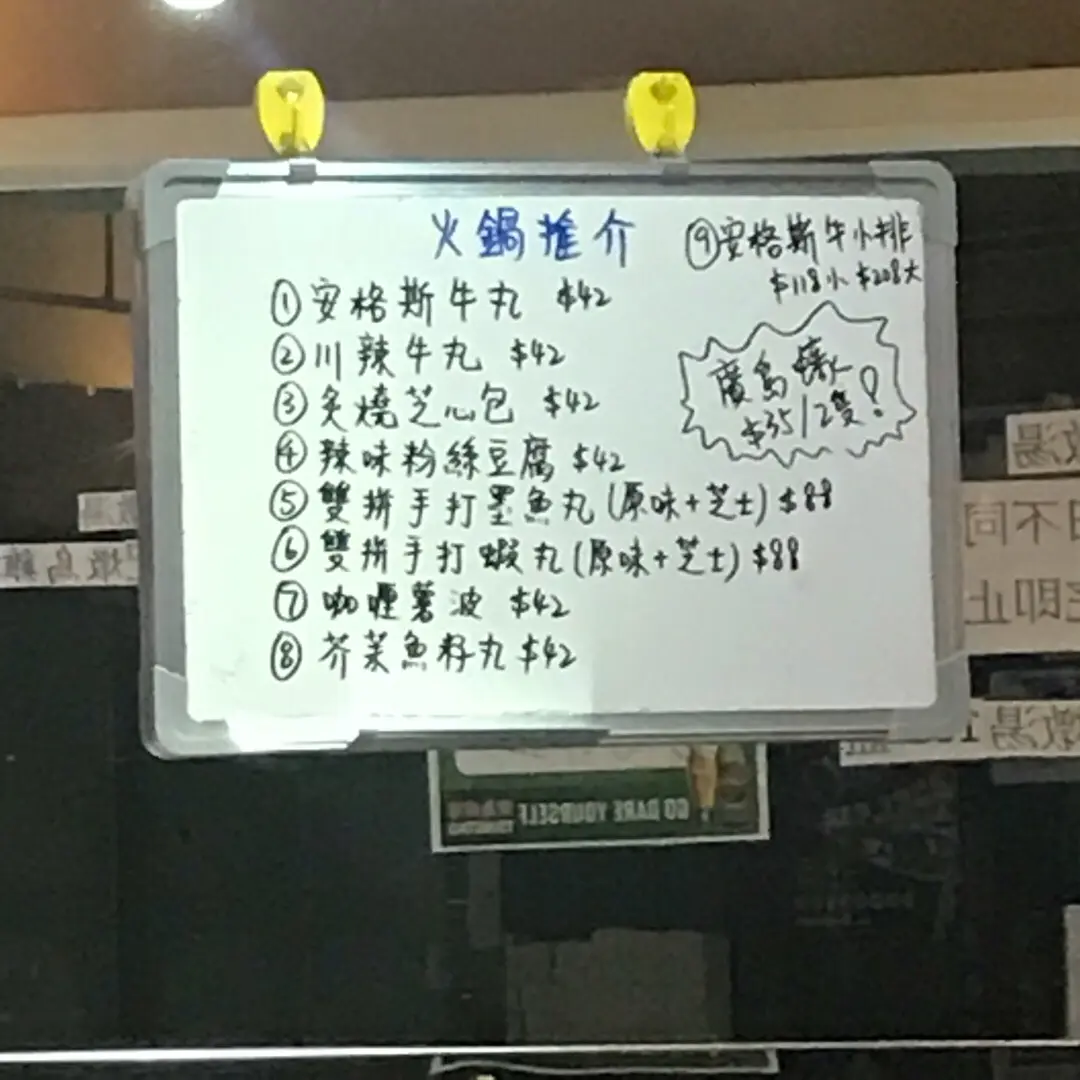 火鍋推介
①安格斯牛丸 $42
②川辣牛丸 $42
③炙燒芝心包 $42
④辣味粉絲豆腐 $42
⑤雙拼手打墨魚丸(原味+芝士) $88
⑥雙拼手打蝦丸(原味+芝士) $88
⑦咖喱薯波 $42
⑧芥茉魚籽丸 $42
⑨安格斯牛小排
$118小 $208大
廣島蠔
$35/2隻!
敦湯
不同
即止
敦湯
GO DARE YOURSELF